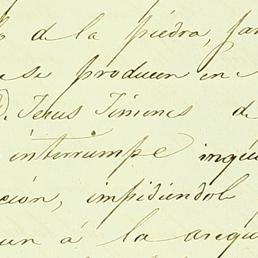 de la piedra, par
se producen en
). Jesus Timones de
interrumpe inqui
ción, impidiéndol
un á la arequ